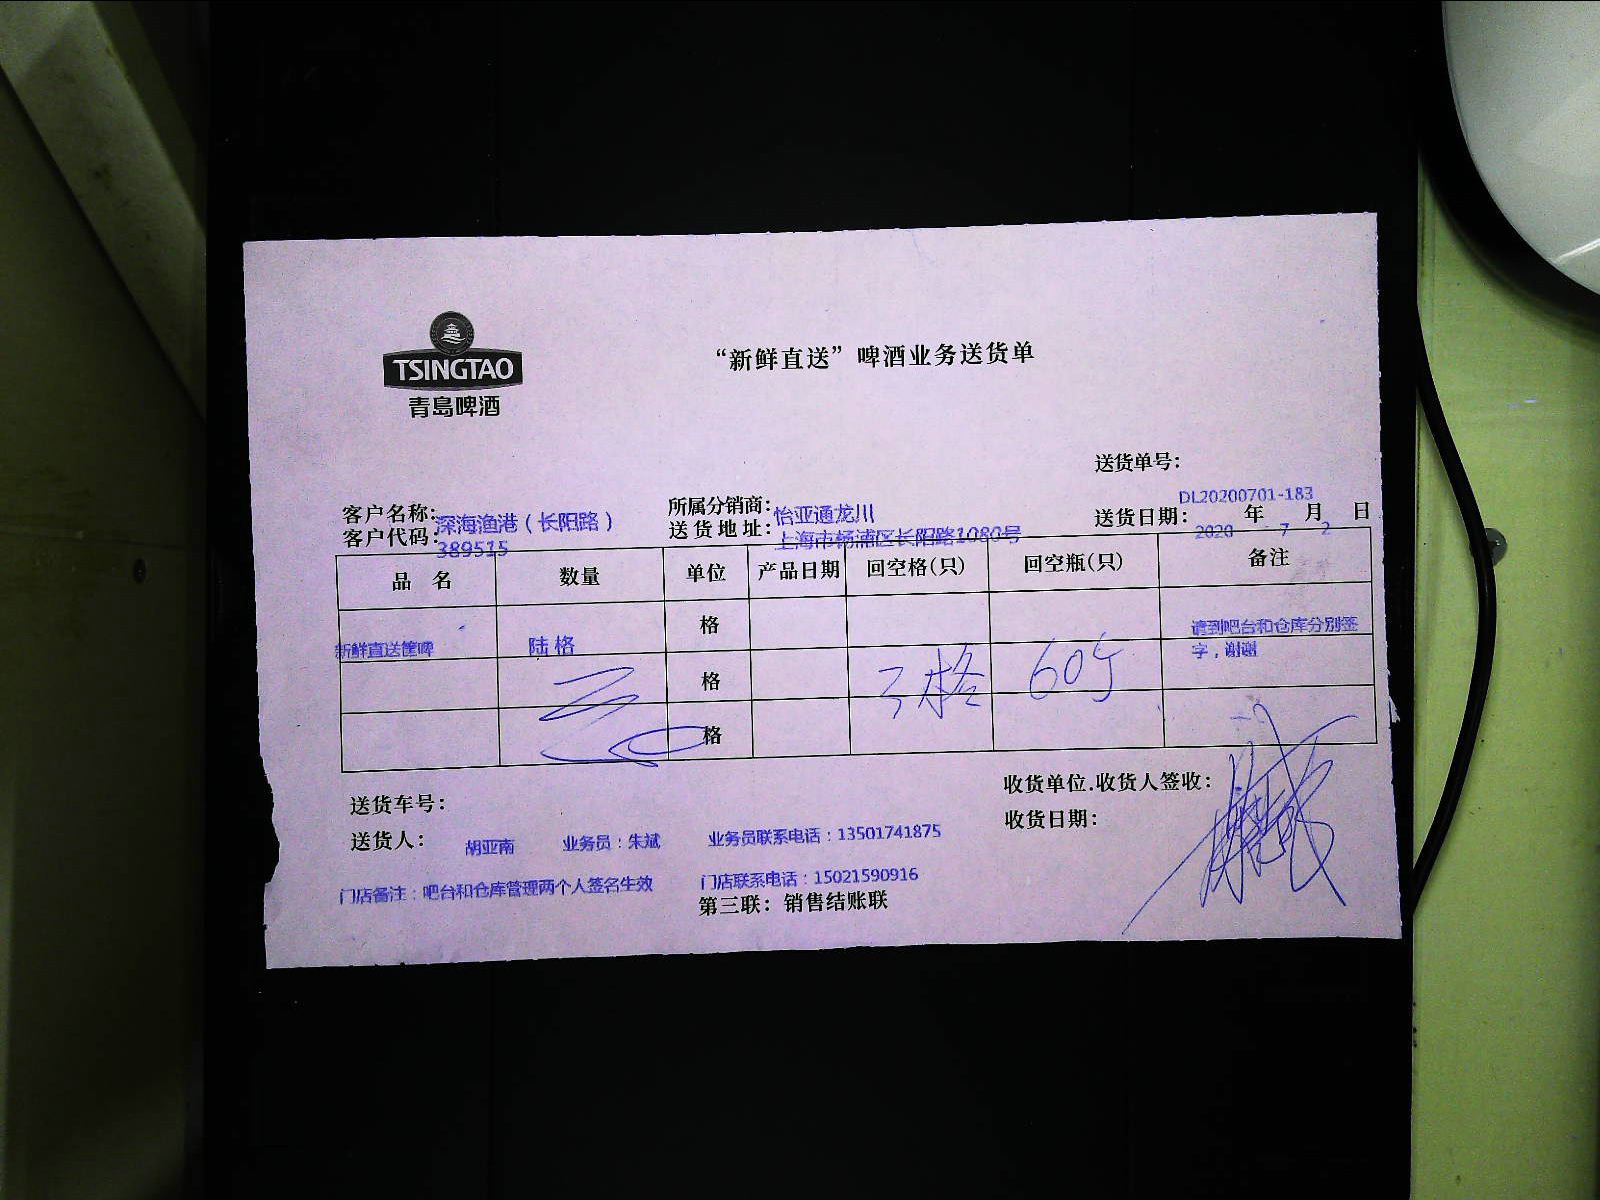 TSINGTAO
青岛啤酒
“新鲜直送”啤酒业务送货单
送货单号：
DL20200701-183
客户名称：深海渔港（长阳路）
所属分销商：怡亚通龙川
送货日期：2020年7月2日
客户代码：389515
送货地址：上海市杨浦区长阳路1080号
品 名 数量 单位 产品日期 回空格(只) 回空瓶(只) 备注
新鲜直送筐啤 陆格 格 请到吧台和仓库分别签字，谢谢
格 3格 60个
格
送货车号：
收货单位.收货人签收：
送货人： 胡亚南 业务员：朱斌 业务员联系电话：13501741875
收货日期：
门店备注：吧台和仓库管理两个人签名生效 门店联系电话：15021590916
第三联：销售结账联